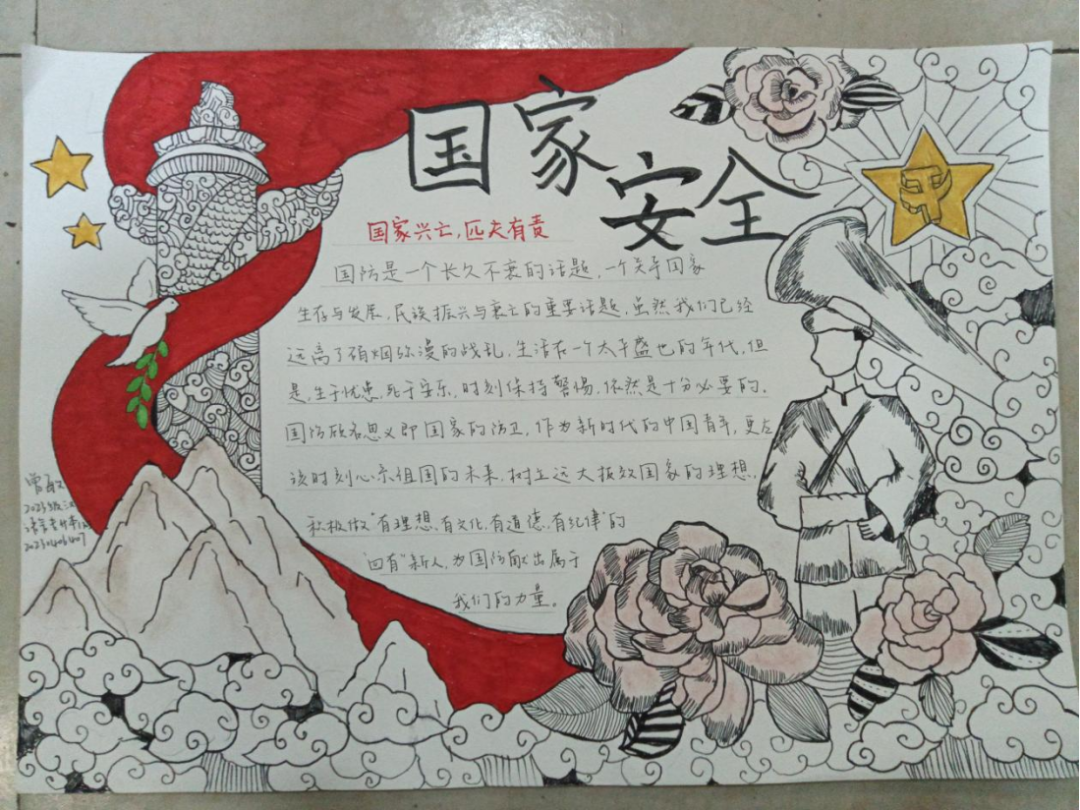 国家
安全
国家兴亡，匹夫有责
国防是一个长久不衰的话题，一个关乎国家
生存与发展，民族振兴与衰亡的重要话题，虽然我们已经
远离了硝烟弥漫的战乱，生活在一个太平盛世的年代，但
是，生于忧患，死于安乐，时刻保持警惕，依然是十分必要的。
国防顾名思义即国家的防卫，作为新时代的中国青年，更应
该时刻心系祖国的未来，树立远大报效国家的理想，
积极做“有理想，有文化，有道德，有纪律”的
四有“新人，为国防献出属于
我们的力量。
2023级